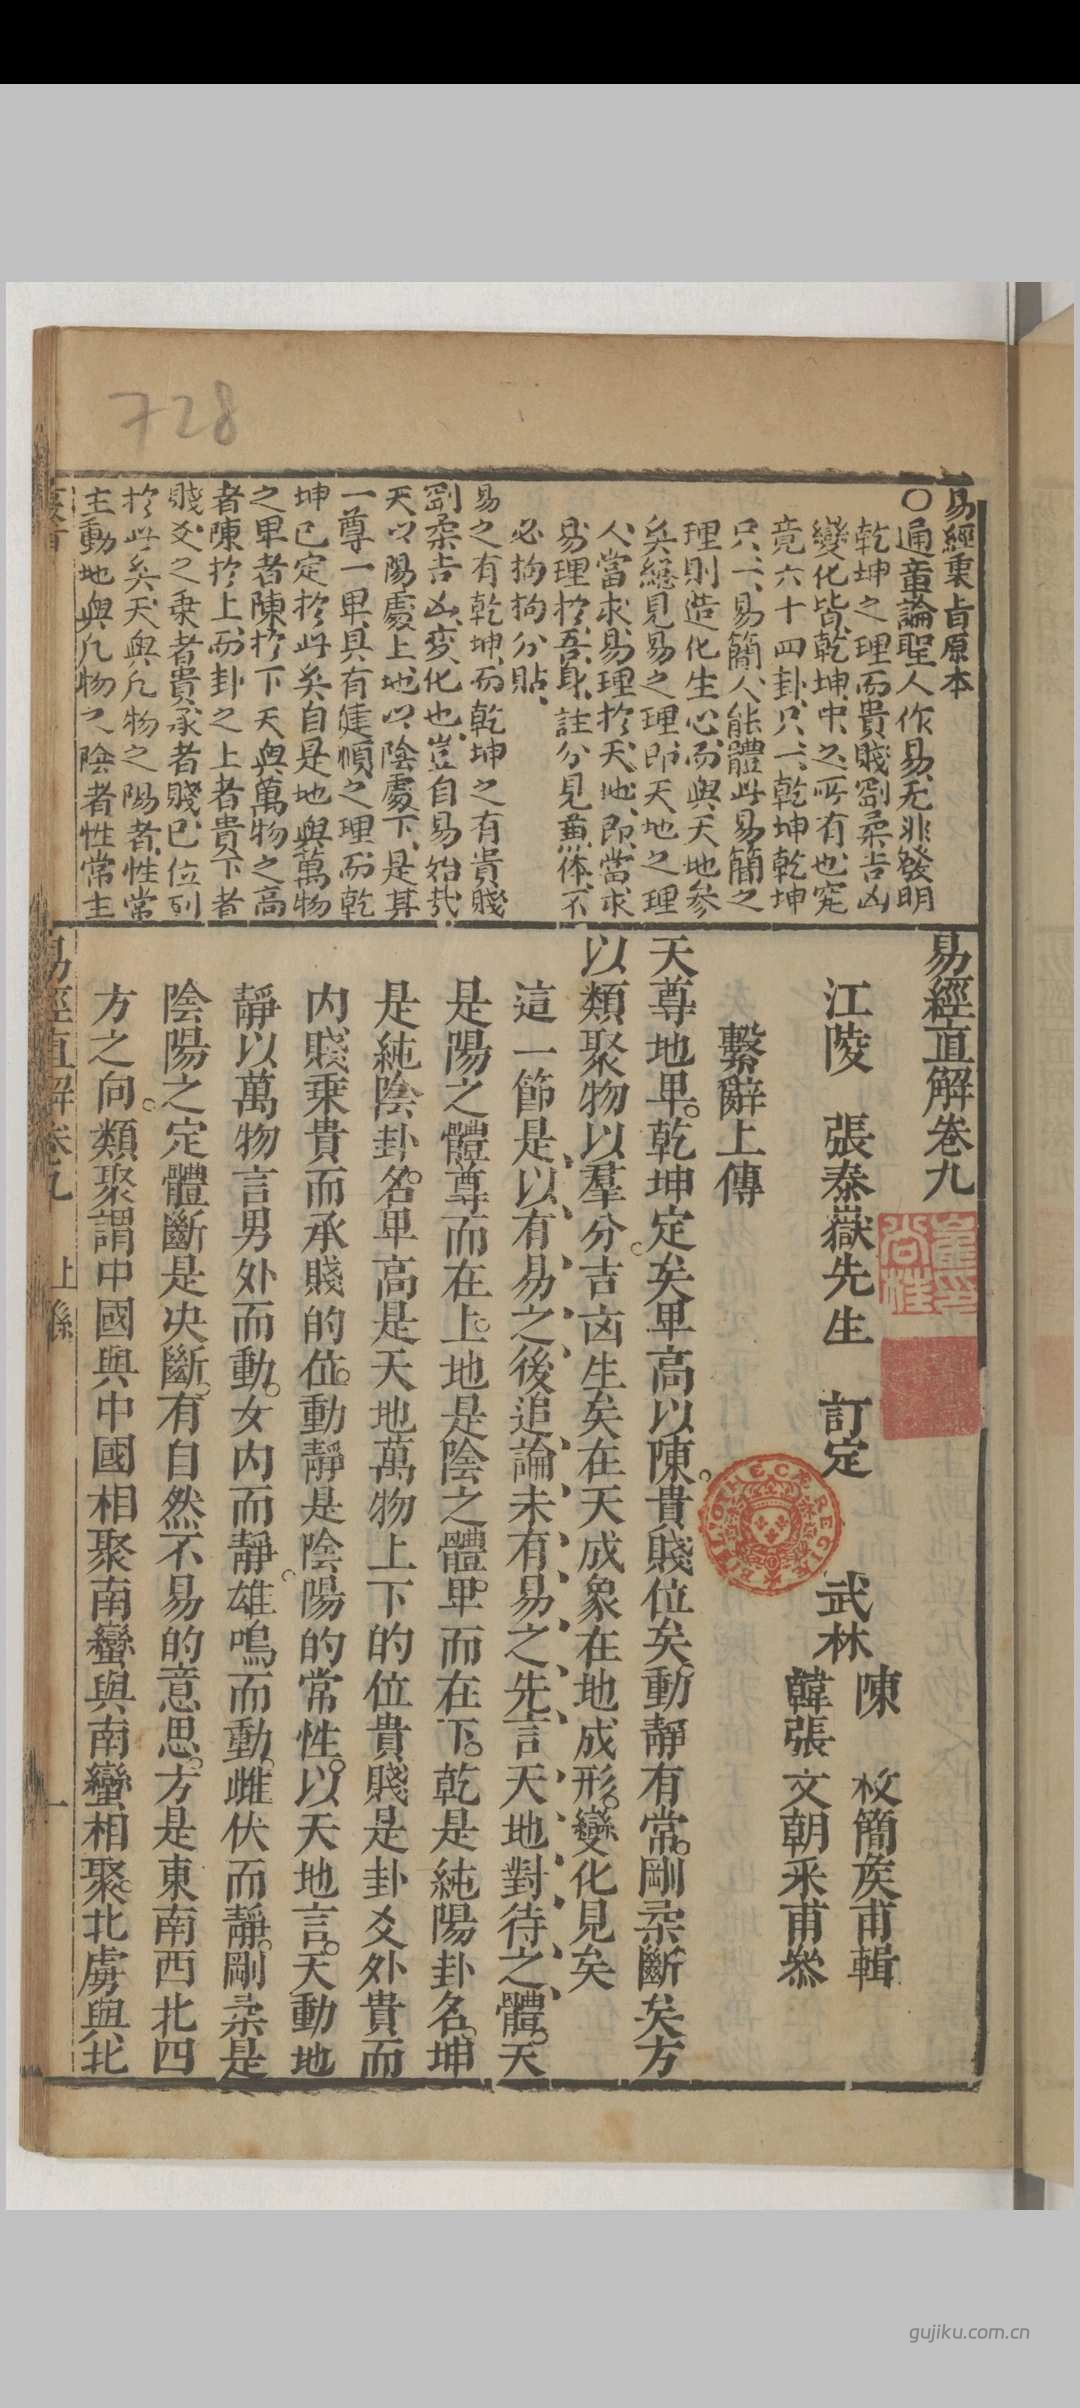 728
易經衷旨原本
○通章論聖人作易无非發明
乾坤之理而貴賤剛柔吉凶
變化皆乾坤中之所有也究
竟六十四卦只一乾坤乾坤
只一易簡人能體此易簡之
理則造化生心而與天地參
矣總見易之理即天地之理
人當求易理於天地即當求
易理於吾身註分見兼体不
必拘拘分貼
易之有乾坤而乾坤之有貴賤
剛柔吉凶変化也豈自易始哉
天以陽處上地以陰處下是其
一尊一卑具有健順之理而乾
坤已定於此矣自是地與萬物
之卑者陳於下天與萬物之高
者陳於上而卦之上者貴下者
賤爻之乗者貴承者賤已位列
於此矣天與凡物之陽者性常
主動地與凡物之陰者性常主
易經直解卷九
江陵 張泰嶽先生 訂定 武林
陳 枚簡矦甫輯
韓張 文朝采甫叅
繫辭上傳
天尊地卑。乾坤定矣卑高以陳。貴賤位矣。動靜有常。剛柔斷矣方
以類聚物以羣分。吉凶生矣在天成象在地成形。變化見矣
這一節是以有易之後追論未有易之先言天地對待之體。天
是陽之體尊而在上。地是陰之體。卑而在下。乾是純陽卦名。坤
是純陰卦名。卑高是天地萬物上下的位貴賤是卦爻外貴而
内賤乗貴而承賤的位。動靜是陰陽的常性。以天地言。天動地
靜以萬物言男外而動。女内而靜。雄鳴而動。雌伏而靜。剛柔是
陰陽之定體斷是决斷。有自然不易的意思。方是東南西北四
方之向。類聚謂中國與中國相聚南蠻與南蠻相聚。北虜與北
易經直解卷九 上繫 一
gujiku.com.cn
BIBLIOTHECÆ REGIÆ